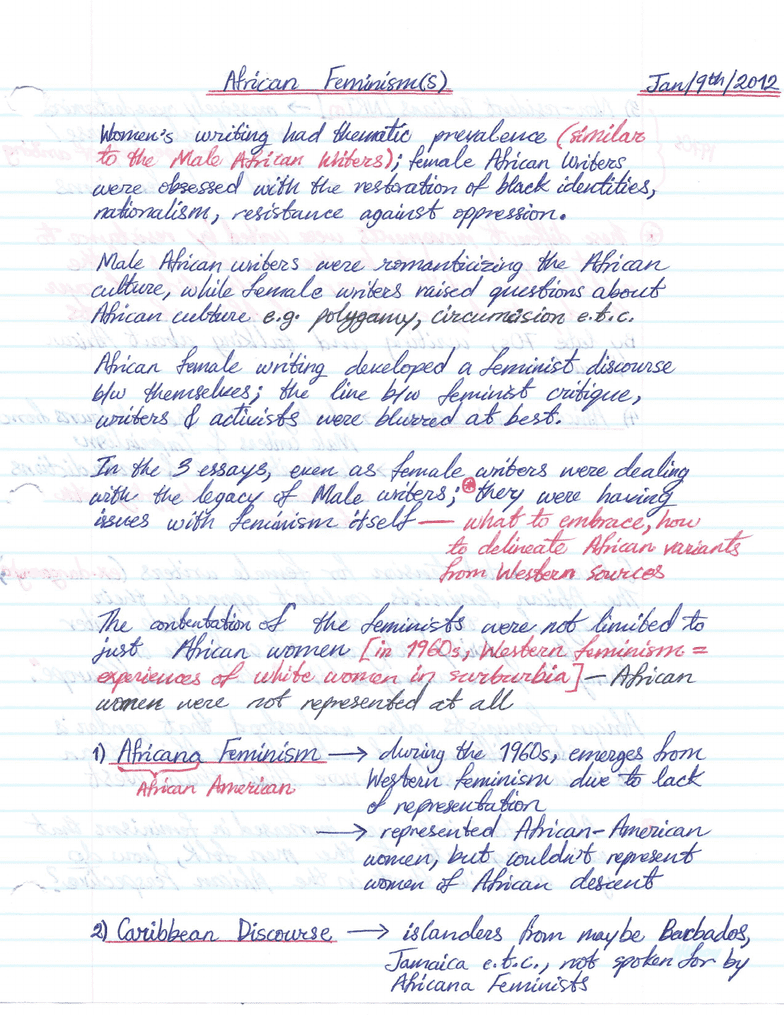 African Feminism(s) Jan/9th/2012
Women's writing had thematic prevalence (similar
to the Male African Writers); female African Writers
were obsessed with the restoration of black identities,
nationalism, resistance against oppression.
Male African writers were romanticizing the African
culture, while female writers raised questions about
African culture e.g. polygamy, circumcision e.t.c.
African female writing developed a feminist discourse
b/w themselves; the line b/w feminist critique,
writers & activists were blurred at best.
In the 3 essays, even as female writers were dealing
with the legacy of Male writers; they were having
issues with feminism itself — what to embrace, how
to delineate African variants
from Western sources
The contentation of the feminists were not limited to
just African women [in 1960s, Western feminism =
experiences of white women in surburbia] — African
women were not represented at all
1) Africana Feminism → during the 1960s, emerges from
African American Western feminism due to lack
of representation
→ represented African-American
women, but couldn't represent
women of African descent
2) Caribbean Discourse → islanders from maybe Barbados,
Jamaica e.t.c., not spoken for by
Africana Feminists